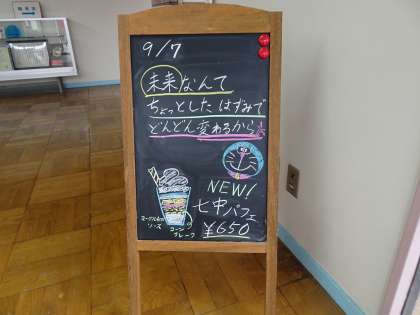 9/7
未来なんて
ちょっとした はずみで
どんどん変わるから
NEW!
七中パフェ
¥650
ヨーグルト
ソース
コーン
フレーク